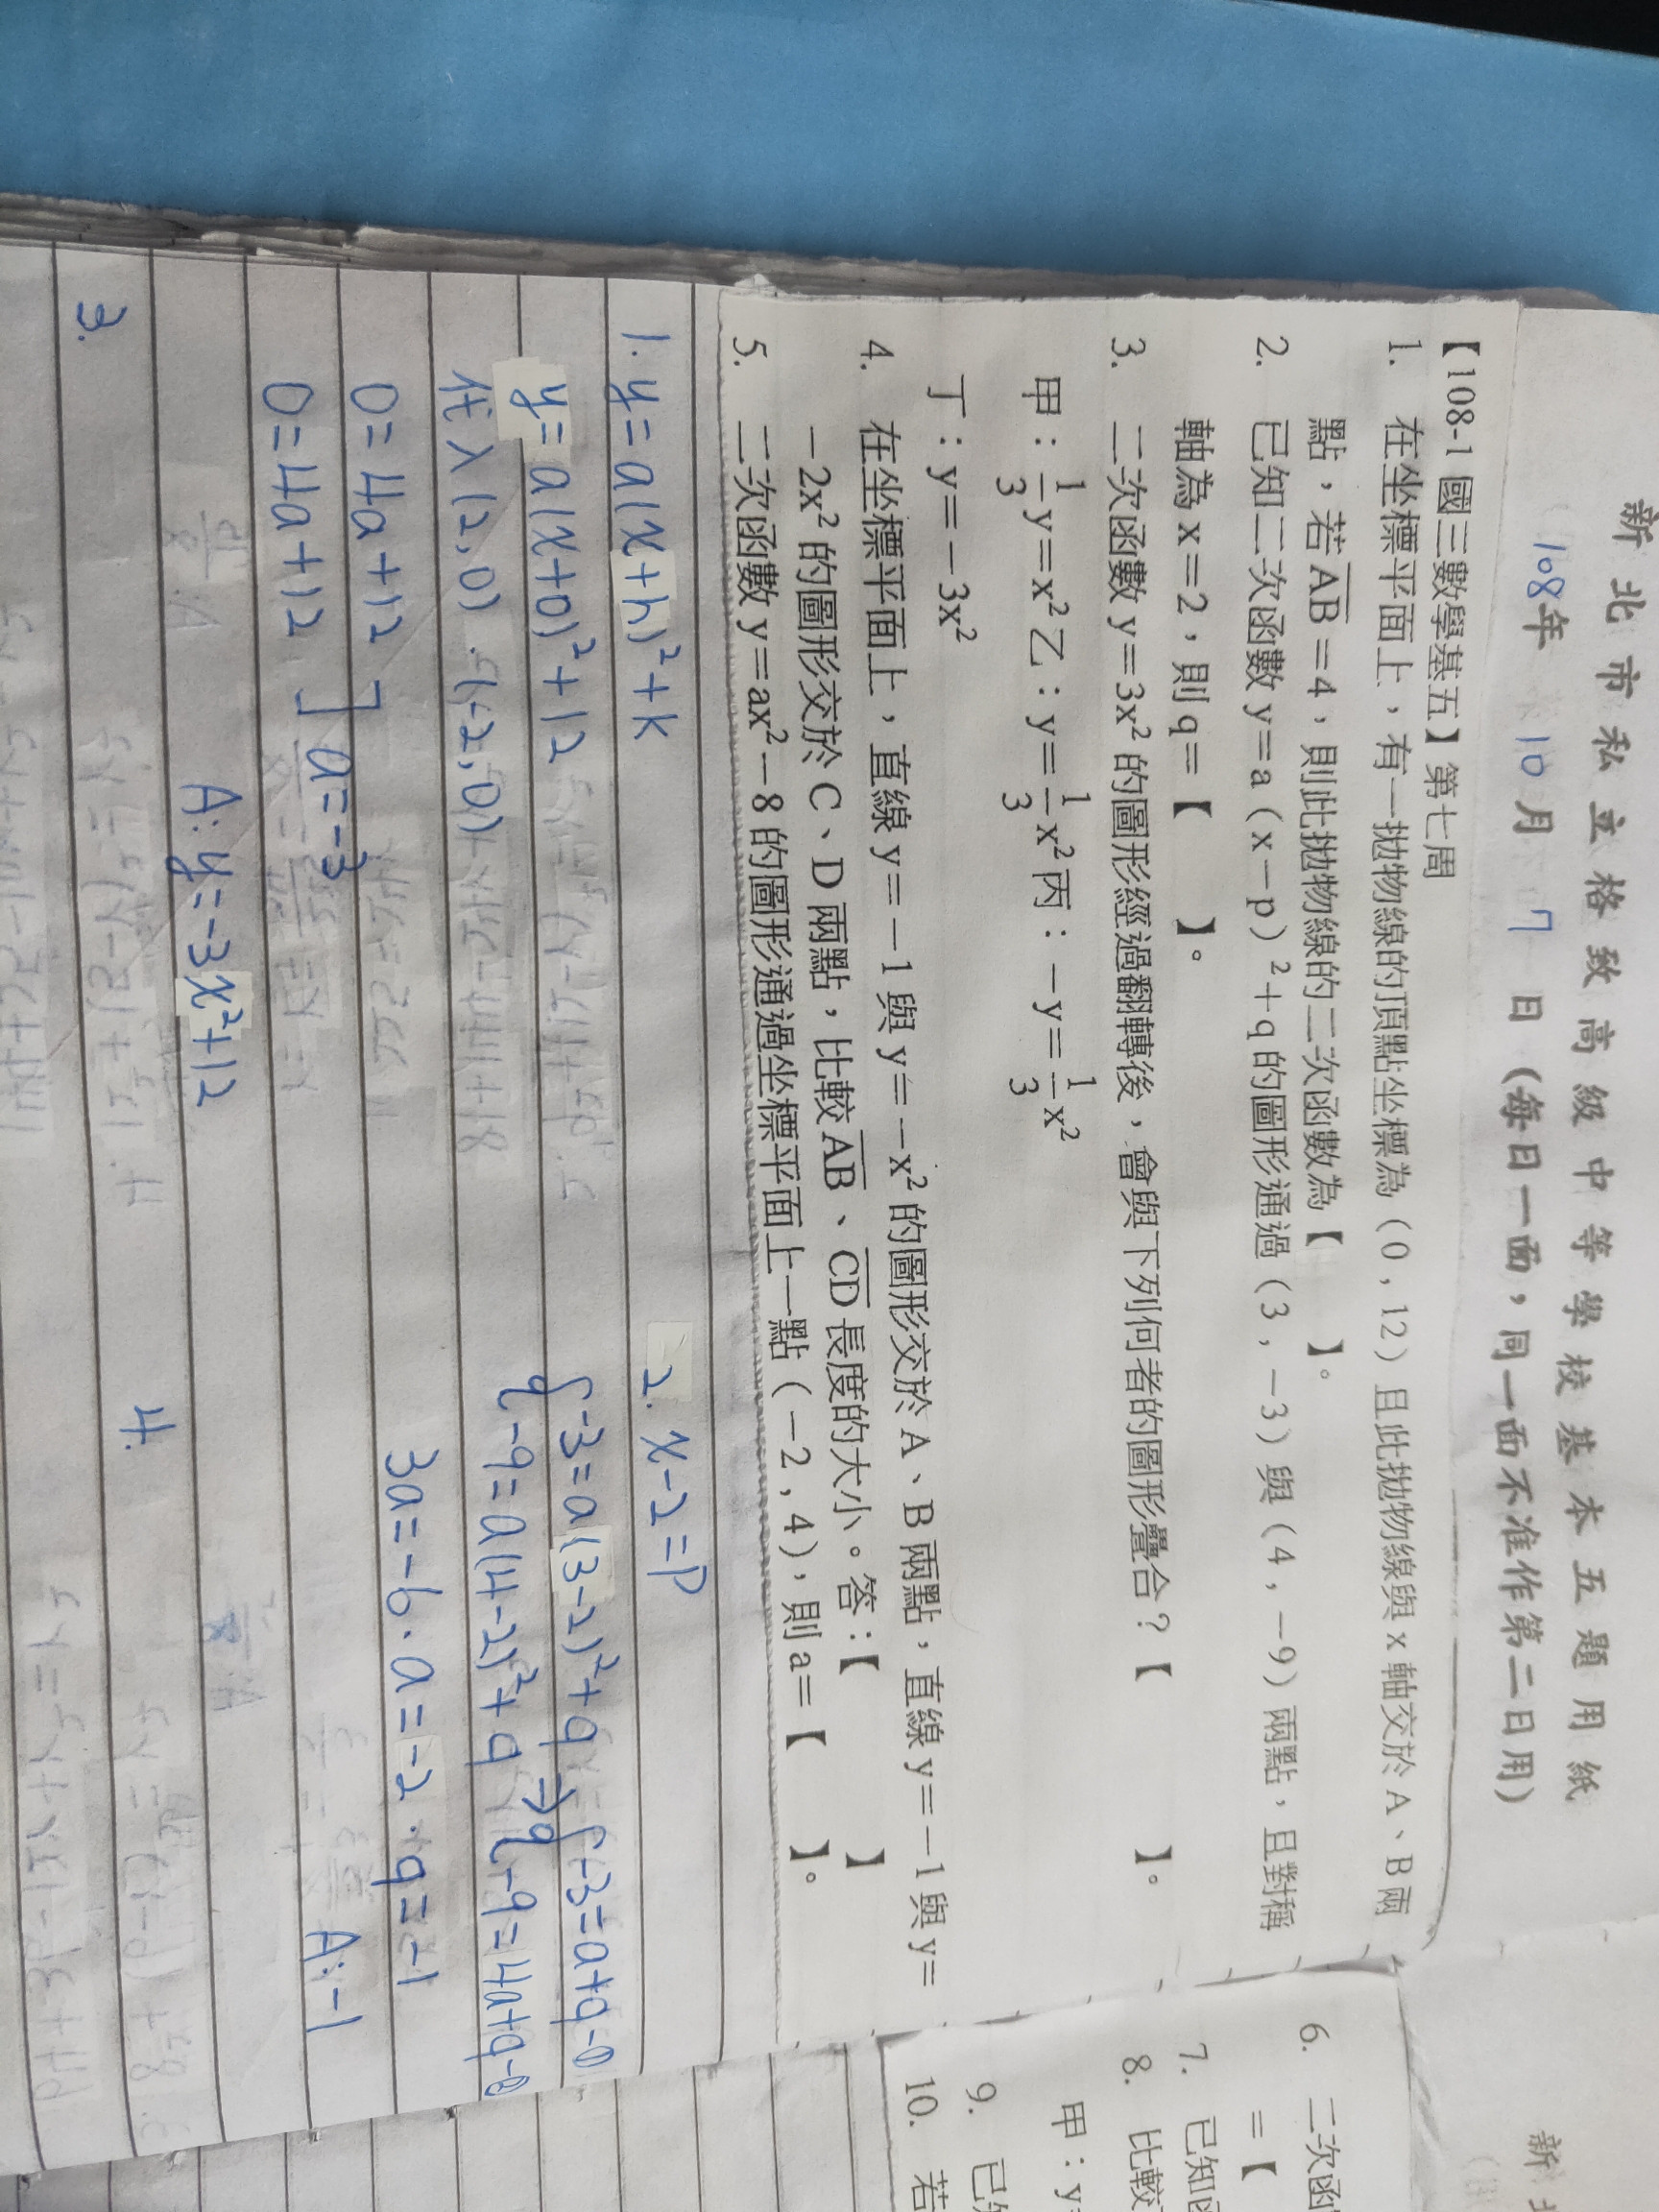 新北市私立格致高級中等學校基本五題用紙
108年 10月 7日(每日一面,同一面不准作第二日用)
【108-1 國三數學基五】第七周
1. 在坐標平面上,有一拋物線的頂點坐標為(0,12)且此拋物線與 x 軸交於 A、B 兩
點,若 AB=4,則此拋物線的二次函數為【 】。
2. 已知二次函數 y=a(x-p)²+q 的圖形通過(3,-3)與(4,-9)兩點,且對稱
軸為 x=2,則 q=【 】。
3. 二次函數 y=3x² 的圖形經過翻轉後,會與下列何者的圖形疊合?【 】。
甲:1/3 y=x² 乙:y=1/3 x² 丙:-y=1/3 x²
丁:y=-3x²
4. 在坐標平面上,直線 y=-1 與 y=-x² 的圖形交於 A、B 兩點,直線 y=-1 與 y=
-2x² 的圖形交於 C、D 兩點,比較 AB、CD 長度的大小。答:【 】
5. 二次函數 y=ax²-8 的圖形通過坐標平面上一點(-2,4),則 a=【 】。
1. y=a(x+h)²+k
y=a(x+0)²+12
代入(2,0)、(-2,0)
0=4a+12
0=4a+12
a=-3
A: y=-3x²+12
2. x-2=p
{-3=a(3-2)²+q → {-3=a+q-①
-9=a(4-2)²+q -9=4a+q-②
3a=-6, a=-2, q=-1
A:-1
3.
4.
6. 二次函
=【
7. 已知函
8. 比較
甲:y
9. 已
10. 若